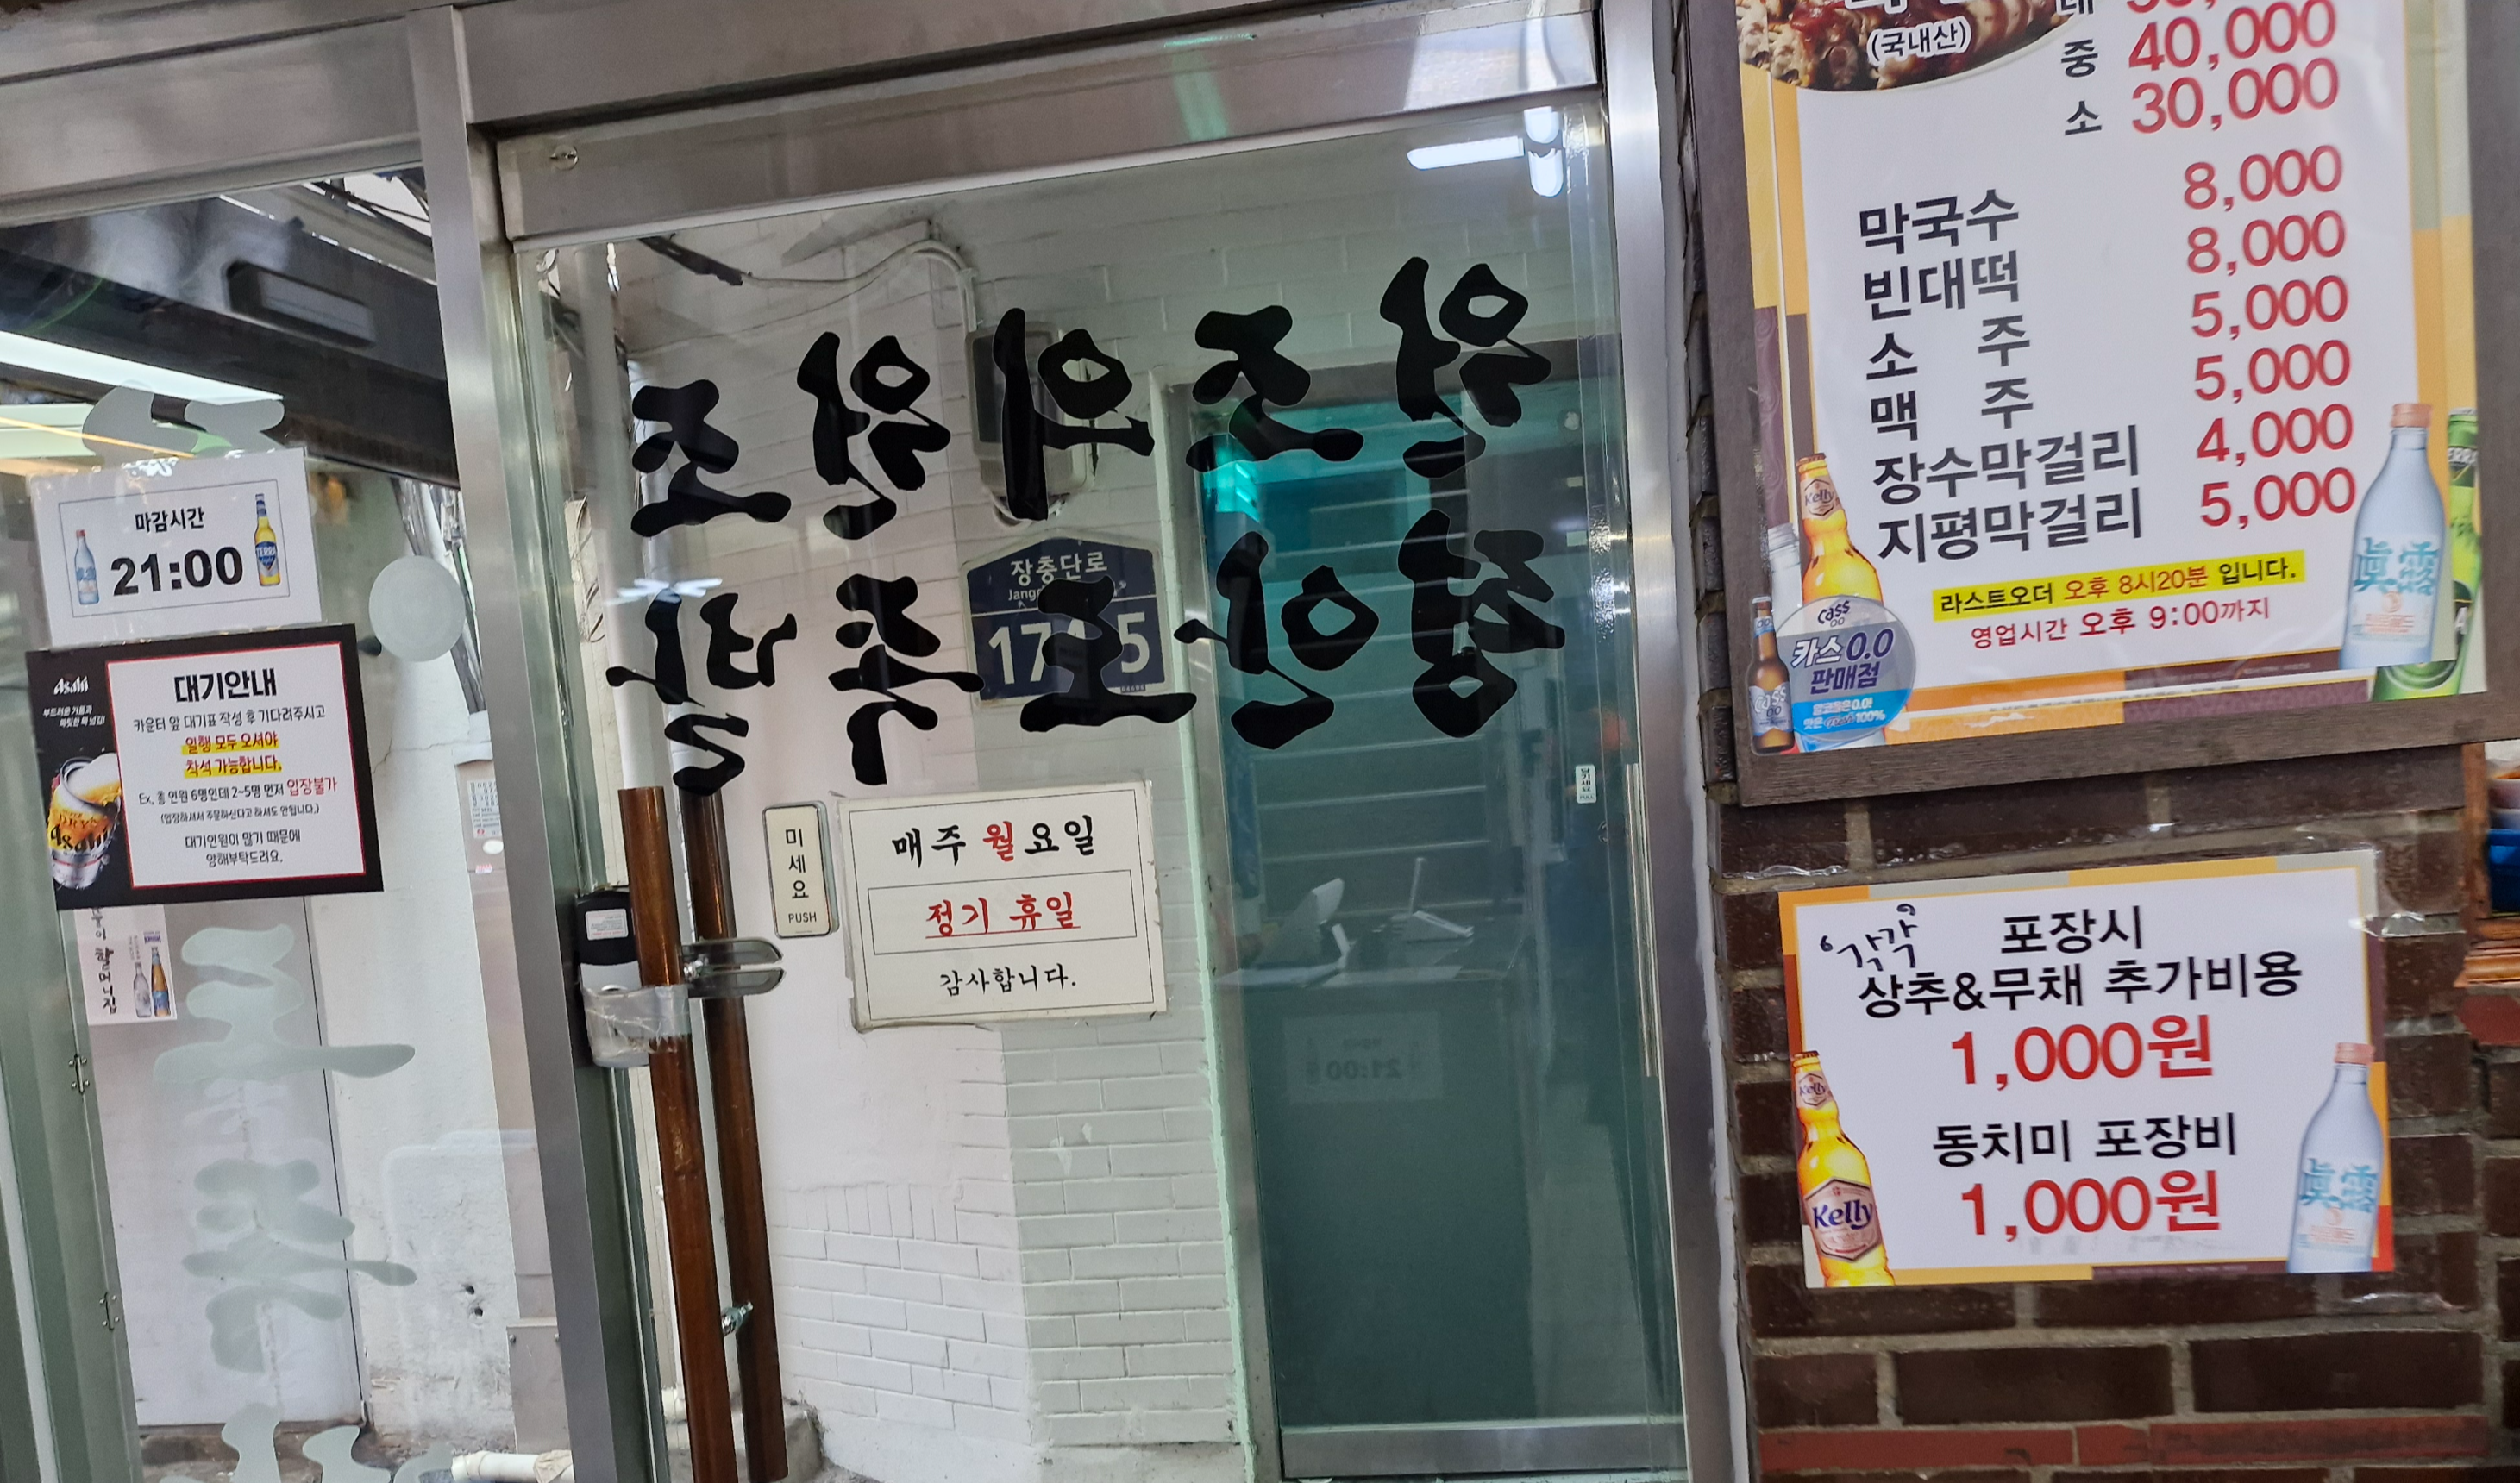 마감시간
21:00
TERRA
Asahi
부드러운 거품과
짜릿한 목 넘김!
대기안내
카운터 앞 대기표 작성 후 기다려주시고
일행 모두 오셔야
착석 가능합니다.
Ex, 총 인원 6명인데 2~5명 먼저 입장불가
(입장하셔서 주문하신다고 하셔도 안됩니다.)
대기인원이 많기 때문에
양해부탁드려요.
Asahi
할머니집
원조의원조
장충단로
17 5
평안도족발
미세요
PUSH
매주 월요일
정기 휴일
감사합니다.
당기세요
PULL
21:00
(국내산)
대
중 40,000
소 30,000
막국수 8,000
빈대떡 8,000
소 주 5,000
맥 주 5,000
장수막걸리 4,000
지평막걸리 5,000
라스트오더 오후 8시20분 입니다.
영업시간 오후 9:00까지
Kelly
眞露
Cass
0.0
카스 0.0
판매점
'각각'
포장시
상추&무채 추가비용
1,000원
동치미 포장비
1,000원
Kelly
Kelly
眞露